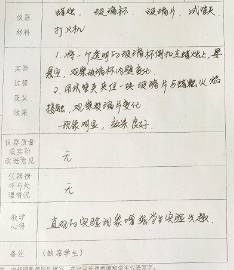 仪器 蜡烛、玻璃杯 玻璃片、试管夹
材料 打火机
实验 1、将一个透明的玻璃杯倒扣在蜡烛上
过程 观察玻璃杯内壁变化
及其 2、用试管夹夹住一块玻璃片与蜡烛火焰
效果 接触,观察玻璃片变化
现象明显,效果良好
仪器质量
或实验
改进意见 无
仪器损
坏与处
理情况 无
教研
心得 直观的实验现象增强学生实验兴趣。
备注 (缺席学生)